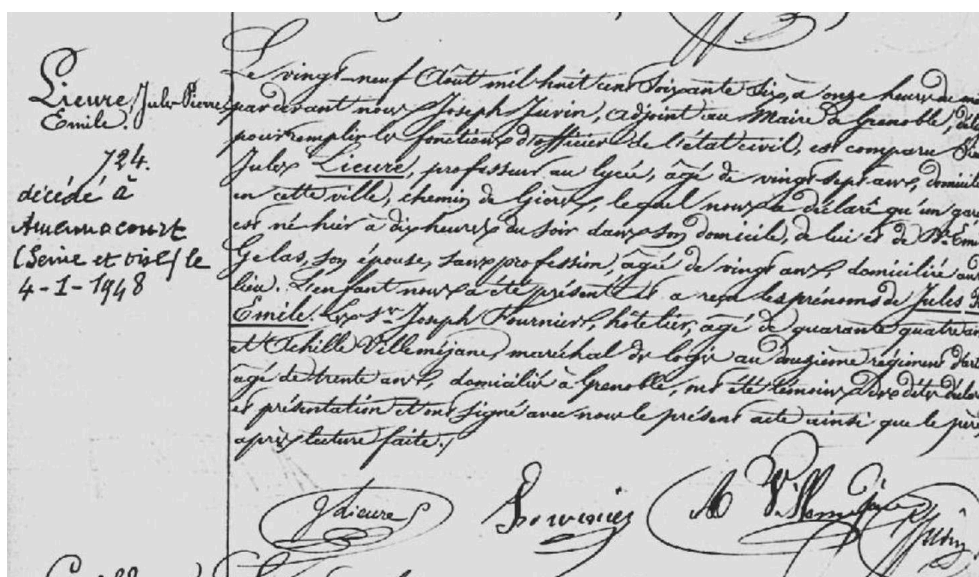 Lieure, Jules Pierre
Emile.
724.
décédé à
(Seine et Oise) le
4-1-1948
Le vingt-neuf Août mil huit cent Soixante Six, à onze heures du
par devant nous Joseph Juvin, adjoint au Maire de Grenoble,
pour remplir les fonctions d'officier de l'état civil, est comparu
Jules Lieure, professeur au lycée, âgé de vingt sept ans,
en cette ville, chemin de Gières, lequel nous a déclaré qu'un
est né hier à dix heures du soir dans son domicile, de lui et de
Gelas, son épouse, sans profession, âgée de vingt ans, domiciliée
lieu. L'enfant nous a été présenté et a reçu les prénoms de Jules
Emile. Les Srs Joseph Fournier, hôtelier, âgé de quarante quatre
et Achille Villeméjane, maréchal des logis au douzième régiment
âgé de trente ans, domiciliés à Grenoble, ont été témoins
et présentation et ont signé avec nous le présent acte ainsi que le
après lecture faite.
J Lieure